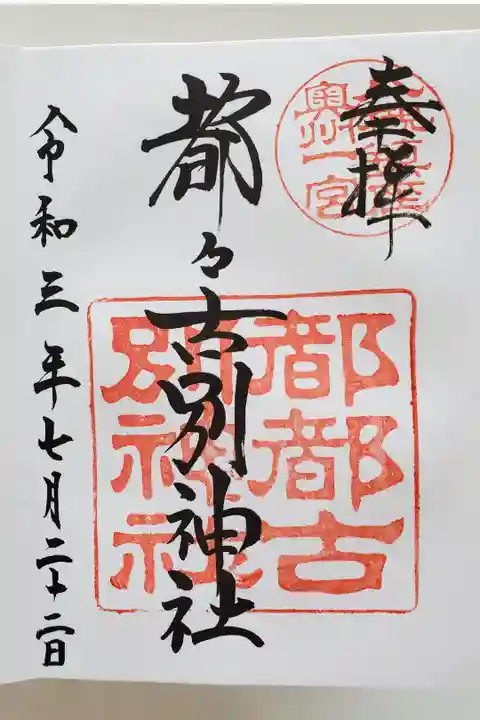 奉拝
奥州一宮
都々古別神社
都都古
別神社
令和三年七月二十二日